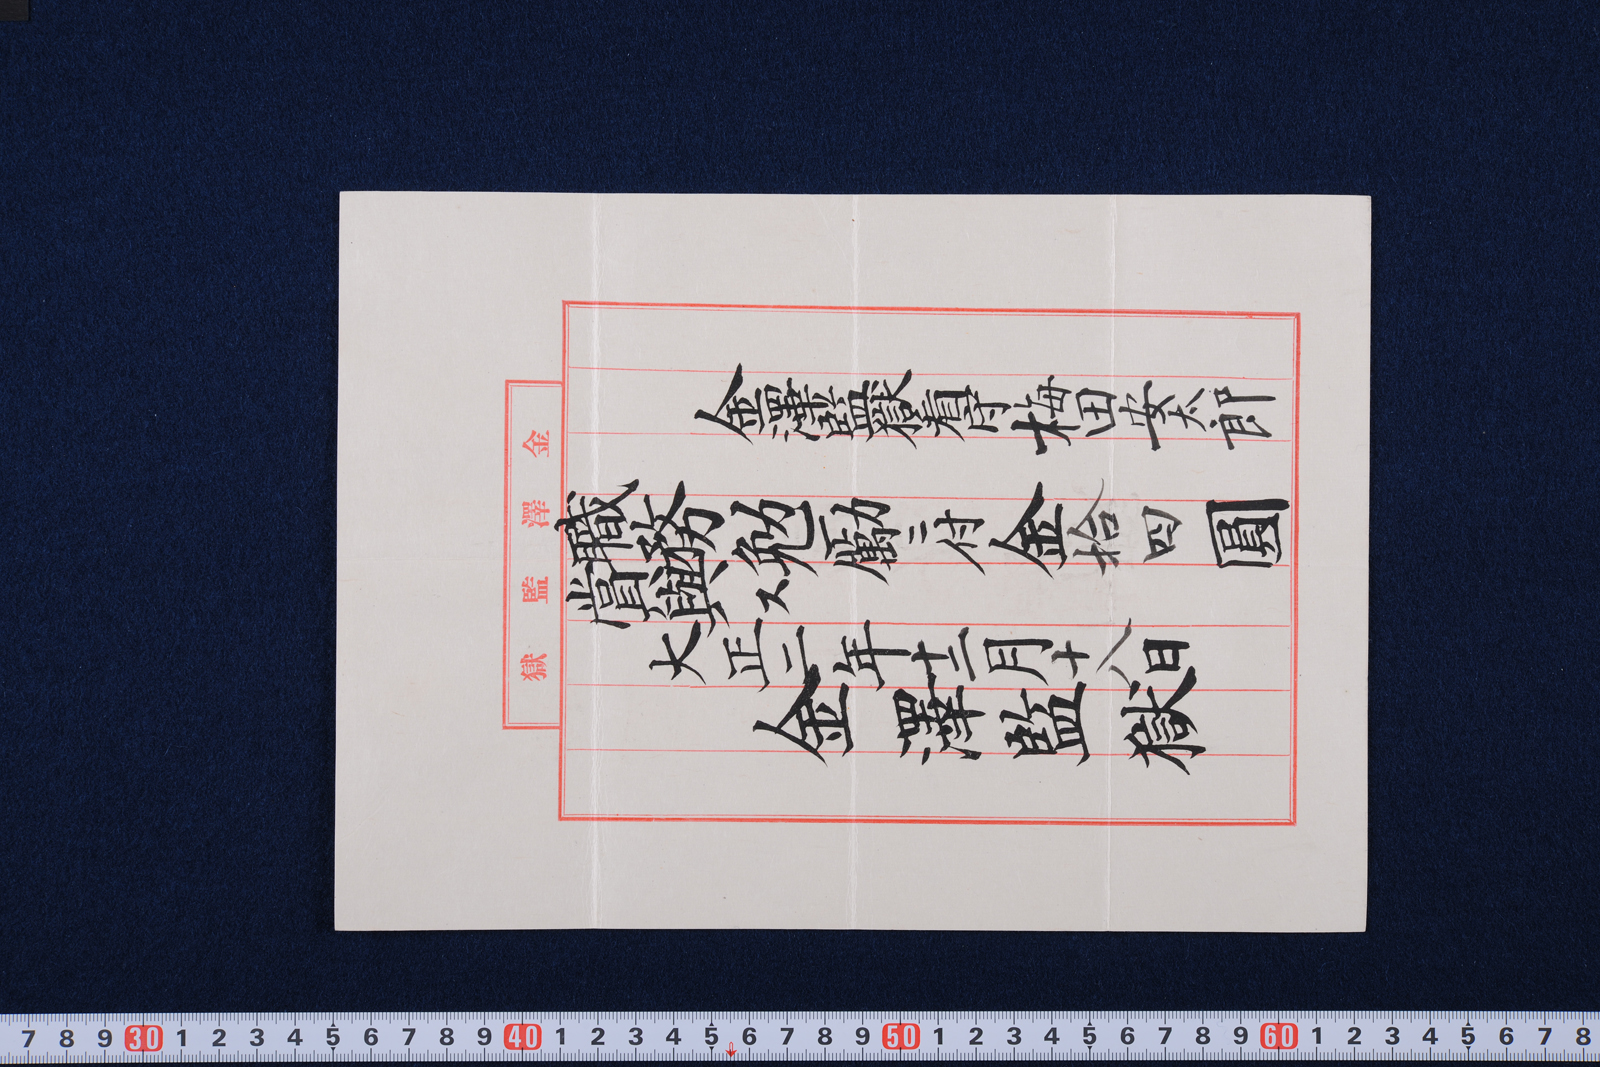 金澤監獄看守梅田安太郎
職務勉勵ニ付金拾四圓
賞與ス
大正二年十二月十八日
金澤監獄
金澤監獄
7 8 9 30 1 2 3 4 5 6 7 8 9 40 1 2 3 4 5 6 7 8 9 50 1 2 3 4 5 6 7 8 9 60 1 2 3 4 5 6 7 8